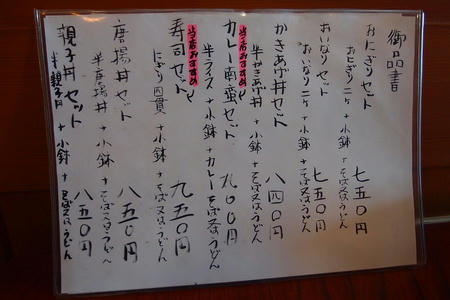 御品書
おにぎりセット 七五〇円
おにぎり二ヶ+小鉢+そば又はうどん
おいなりセット 七五〇円
おいなり二ヶ+小鉢+そば又はうどん
かきあげ丼セット 八四〇円
半かきあげ丼+小鉢+そば又はうどん
当店おすすめ!
カレー南蛮セット 九〇〇円
半ライス+小鉢+カレーそば又はうどん
当店おすすめ!
寿司セット 九五〇円
にぎり四貫+小鉢+そば又はうどん
唐揚丼セット 八五〇円
半唐揚丼+小鉢+そば又はうどん
親子丼セット 八五〇円
半親子丼+小鉢+そば又はうどん